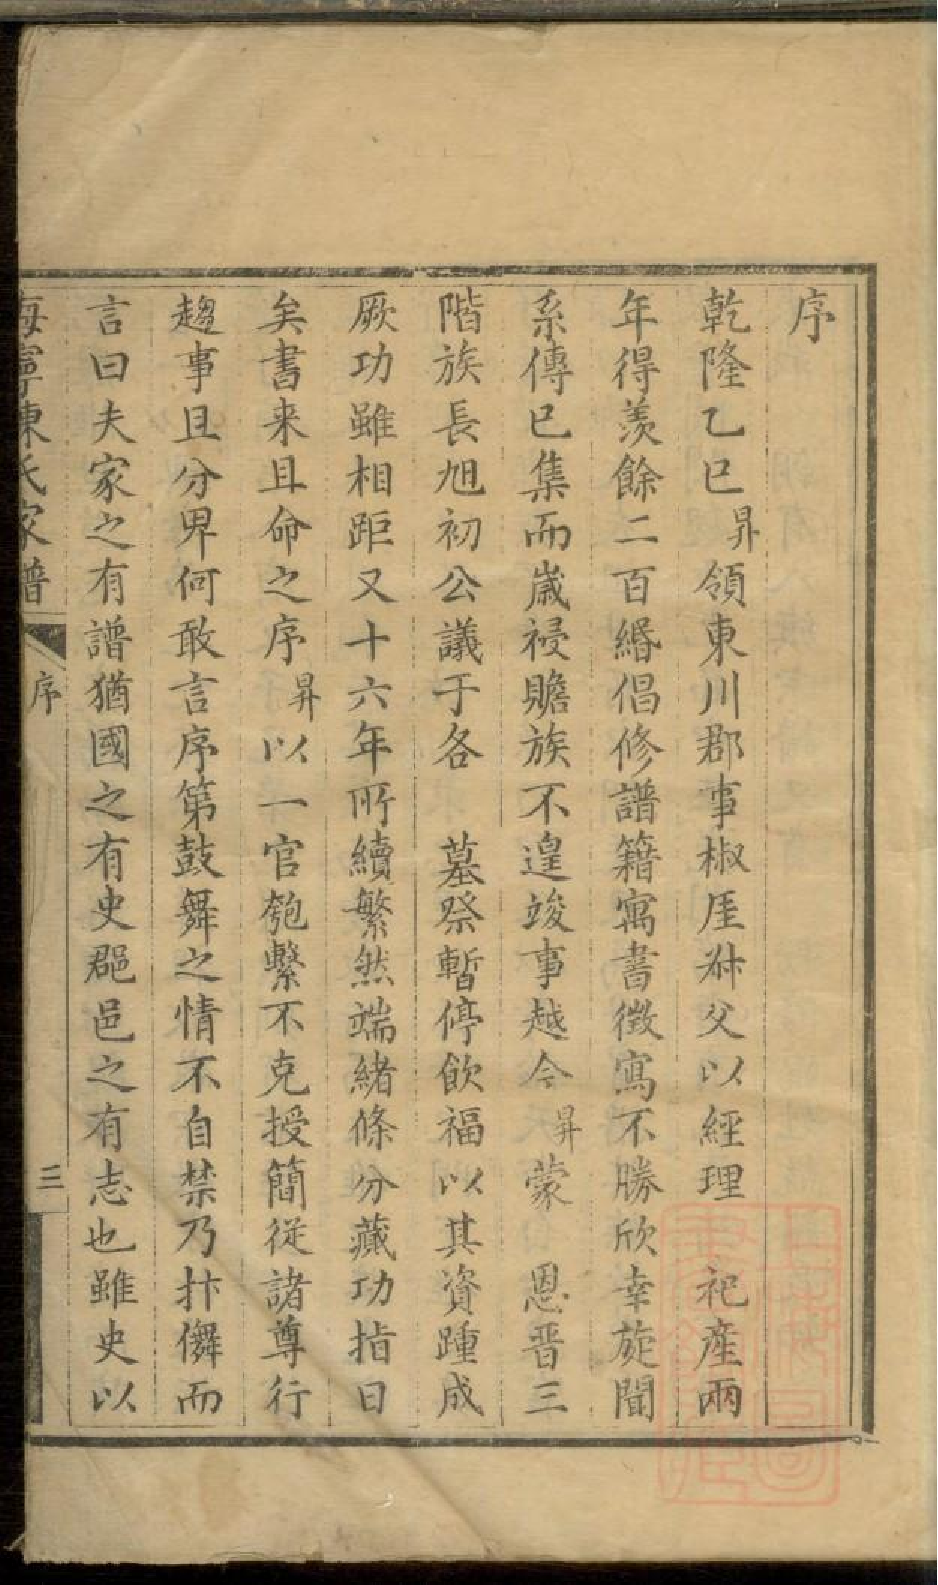 序
乾隆乙巳昇領東川郡事椒厓叔父以經理 祀產兩
年得羨餘二百緡倡修譜籍寓書徵寫不勝欣幸旋聞
系傳已集而嵗祲贍族不遑竣事越今昇蒙 恩晋三
階族長旭初公議于各 墓祭暫停飲福以其資踵成
厥功雖相距又十六年所續繁然端緒條分藏功指日
矣書来且命之序昇以一官匏繫不克授簡從諸尊行
趨事且分畀何敢言序第鼓舞之情不自禁乃抃儛而
言曰夫家之有譜猶國之有史郡邑之有志也雖史以
海寧陳氏家譜 序 三